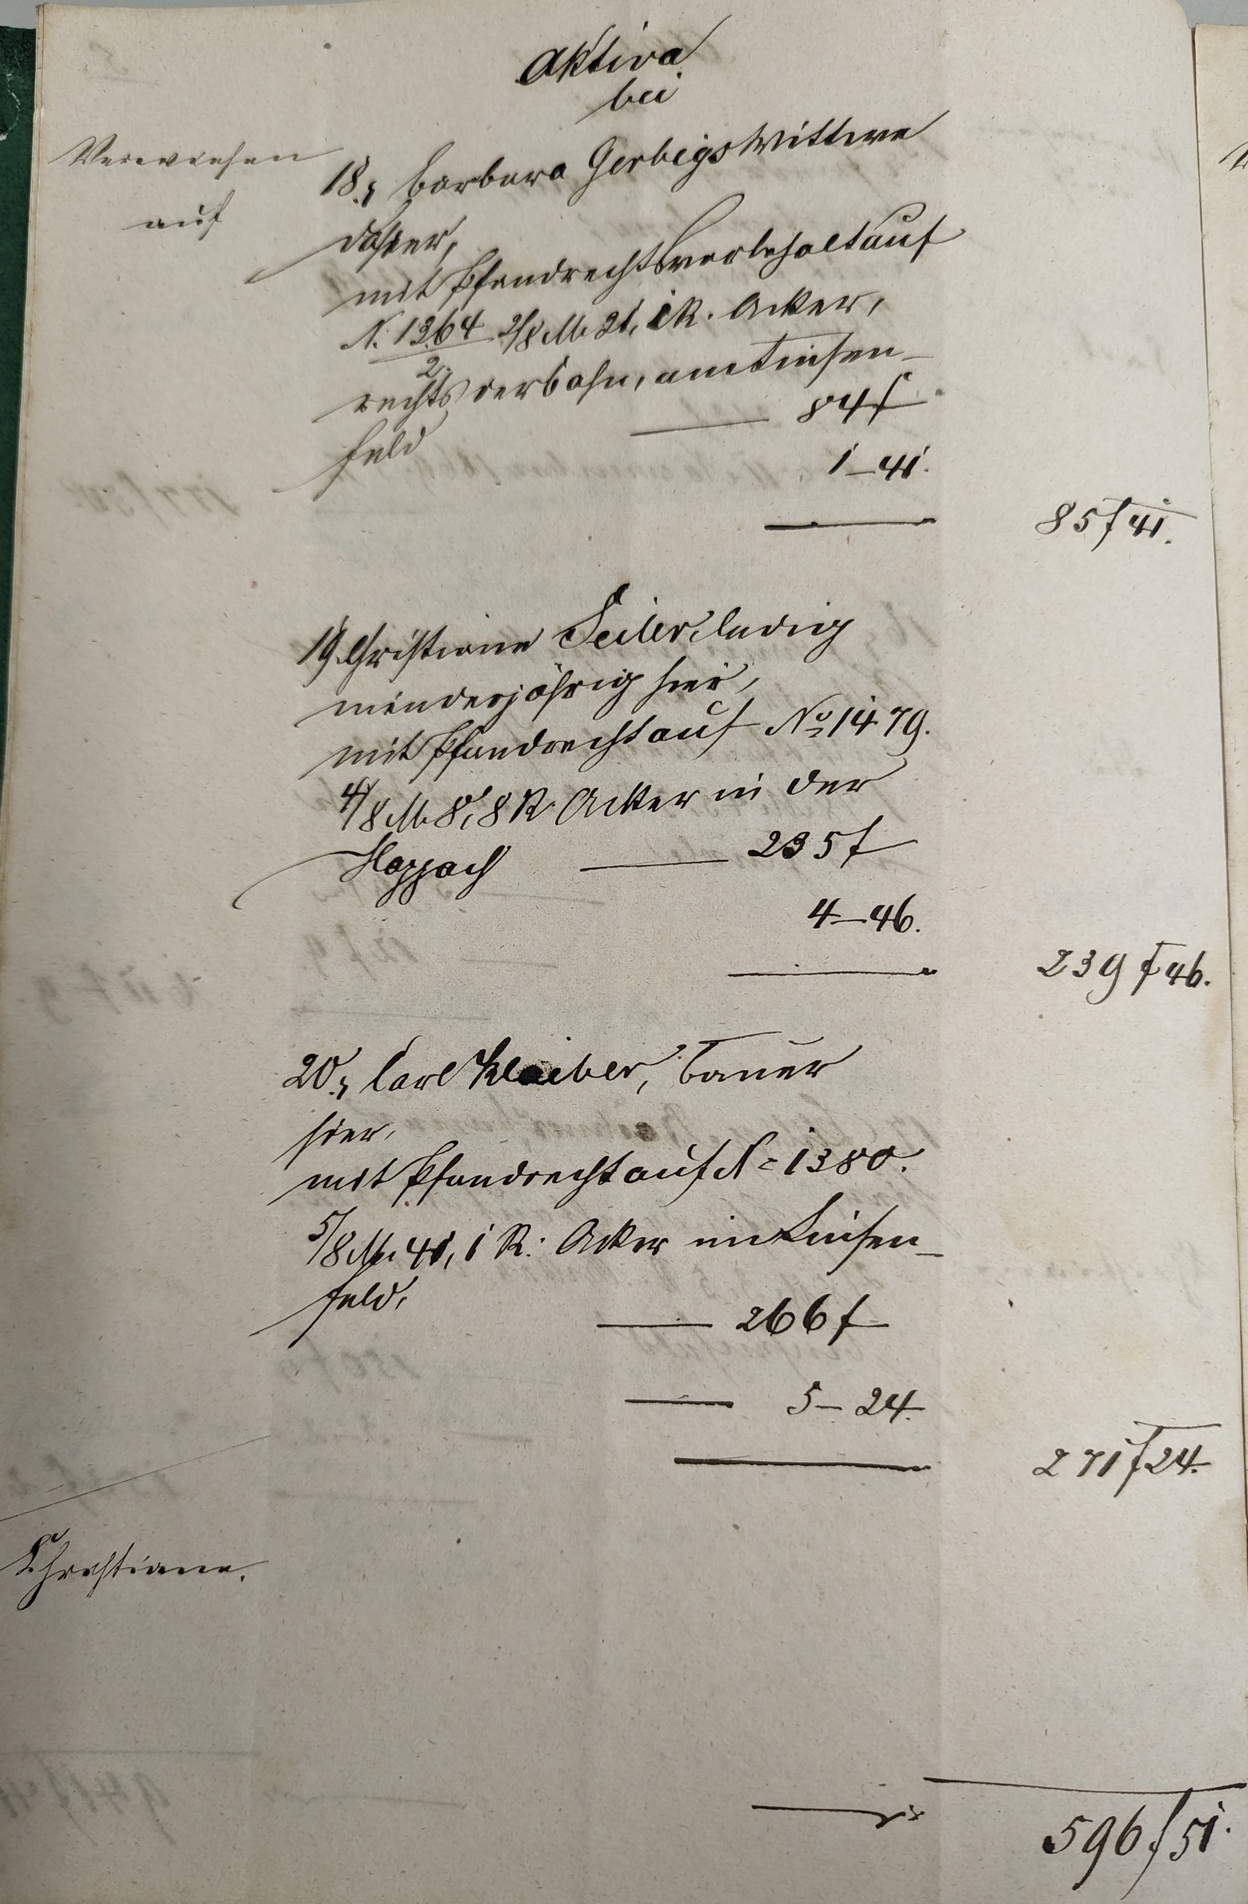 Aktiva
bei
Verwiesen
auf
18., Barbara Gerbigs Wittwe
daher,
mit Pfandrechtsvorbehalt auf
N. 1364/2. 2/8 M. 21,1 R. Acker,
rechts der Bahn, am Linsen-
feld — 84 f
1 – 41.
85 f 41.
19. Christiane Seiler, ledig
minderjährig hier,
mit Pfandrecht auf No 1479.
4/8 M. 8,8 R. Acker in der
Happach — 235 f
4 – 46.
239 f 46.
20., Carl Klaiber, Bauer
hier,
mit Pfandrecht auf N = 1380.
5/8 M. 41,1 R. Acker im Linsen-
feld, — 266 f
— 5 – 24.
271 f 24.
Christiane.
596 f 51.